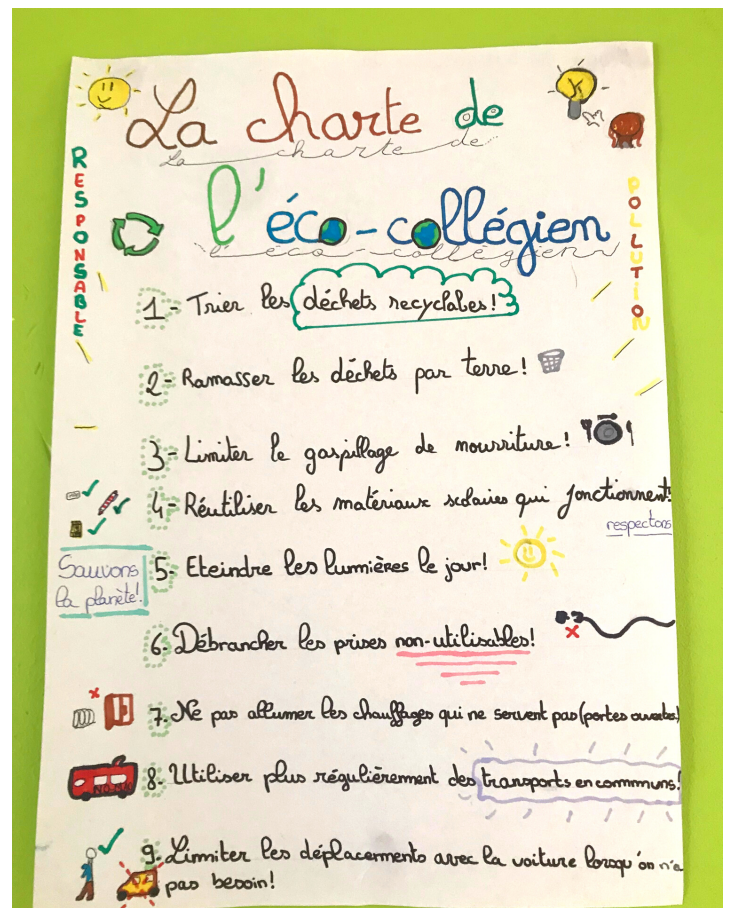 La charte de
La charte de
l'éco-collégien
l'éco-collégien
RESPONSABLE
POLLUTION
1- Trier les déchets recyclables!
2- Ramasser les déchets par terre!
3- Limiter le gaspillage de nourriture!
4- Réutiliser les matériaux scolaires qui fonctionnent!
respectons
Sauvons
la planète!
5- Eteindre les lumières le jour!
6- Débrancher les prises non-utilisables!
7- Ne pas allumer les chauffages qui ne servent pas (portes ouvertes)
8- Utiliser plus régulièrement des transports en commmuns!
9- Limiter les déplacements avec la voiture lorsqu'on n'a
pas besoin!